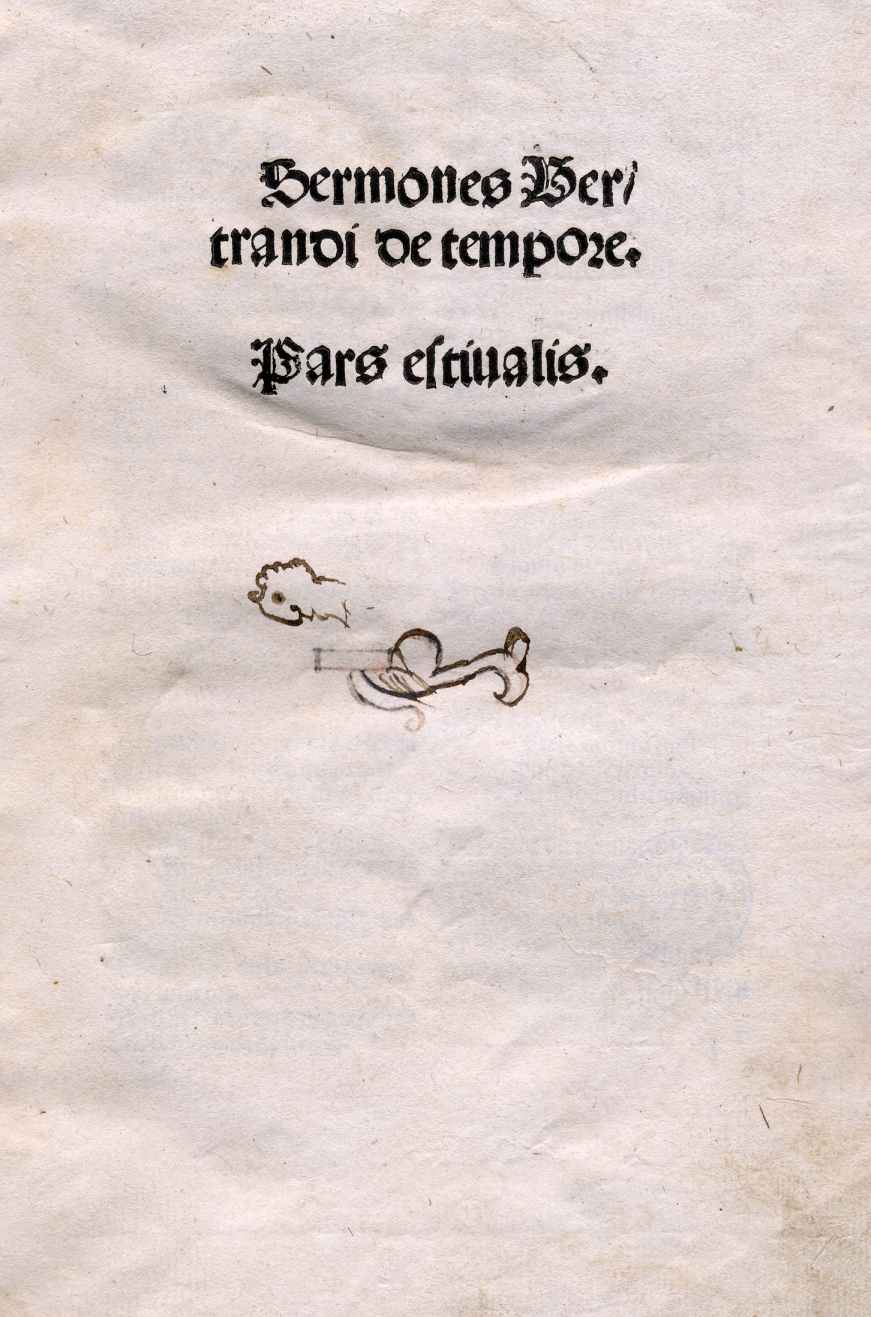 Sermones Ber/
trandi de tempore.
Pars eſtiualis.